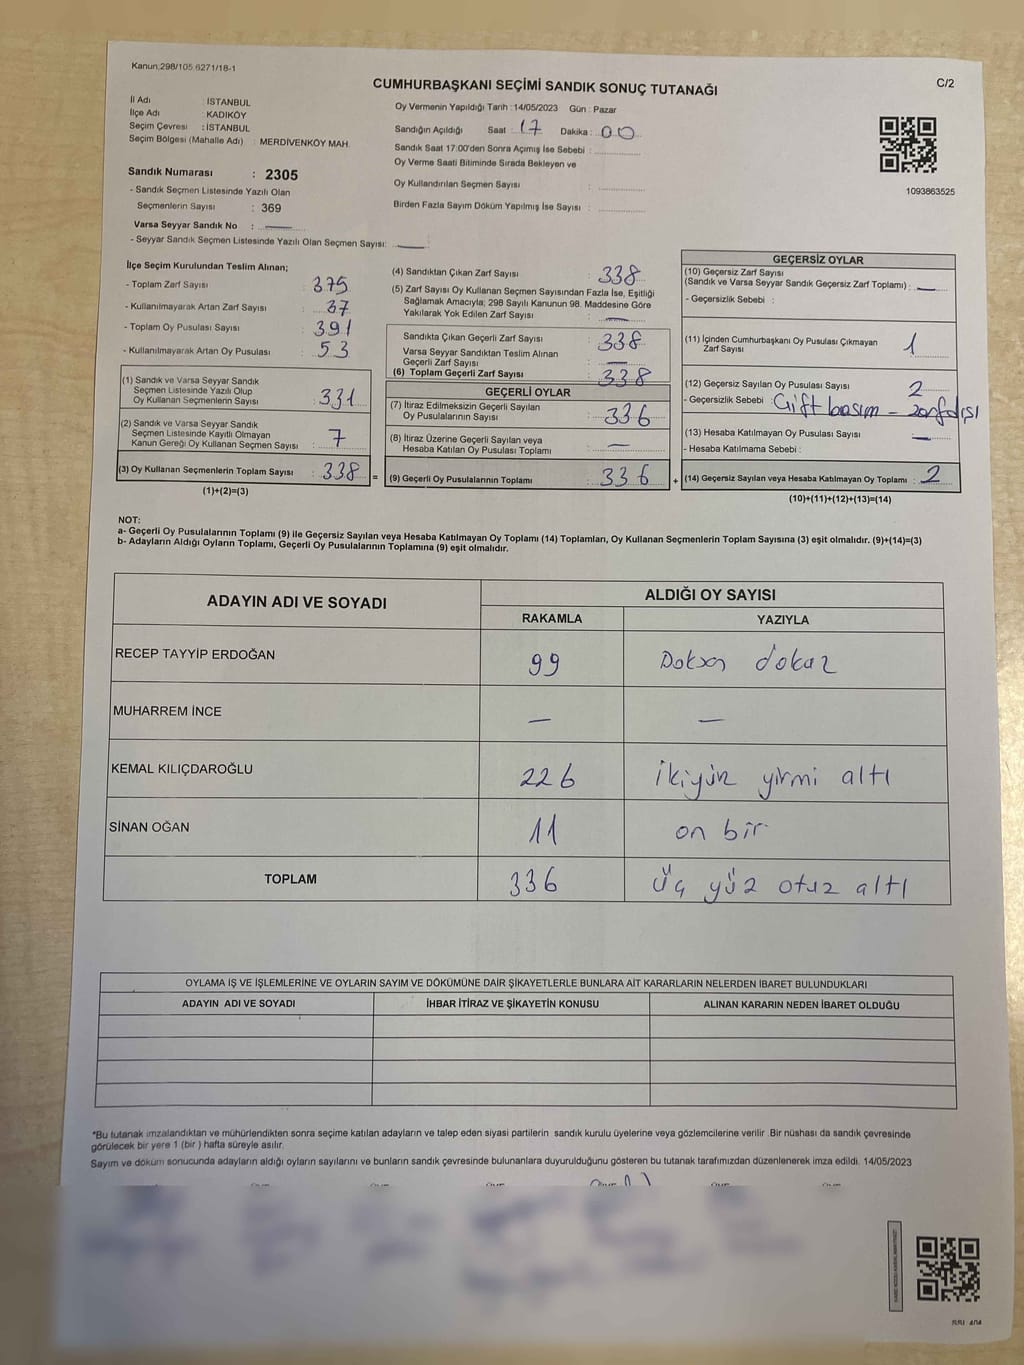 Kanun:298/105.6271/18-1
C/2
CUMHURBAŞKANI SEÇİMİ SANDIK SONUÇ TUTANAĞI
İl Adı : İSTANBUL
İlçe Adı : KADIKÖY
Seçim Çevresi : İSTANBUL
Seçim Bölgesi (Mahalle Adı) : MERDİVENKÖY MAH.
Sandık Numarası : 2305
- Sandık Seçmen Listesinde Yazılı Olan
Seçmenlerin Sayısı : 369
Varsa Seyyar Sandık No : —
- Seyyar Sandık Seçmen Listesinde Yazılı Olan Seçmen Sayısı: —
Oy Vermenin Yapıldığı Tarih :14/05/2023 Gün : Pazar
Sandığın Açıldığı Saat : 17 Dakika : 00
Sandık Saat 17:00'den Sonra Açımış İse Sebebi :
Oy Verme Saati Bitiminde Sırada Bekleyen ve
Oy Kullandırılan Seçmen Sayısı :
Birden Fazla Sayım Döküm Yapılmış İse Sayısı :
1093863525
İlçe Seçim Kurulundan Teslim Alınan;
- Toplam Zarf Sayısı : 375
- Kullanılmayarak Artan Zarf Sayısı : 37
- Toplam Oy Pusulası Sayısı : 391
- Kullanılmayarak Artan Oy Pusulası : 53
(1) Sandık ve Varsa Seyyar Sandık
Seçmen Listesinde Yazılı Olup
Oy Kullanan Seçmenlerin Sayısı : 331
(2) Sandık ve Varsa Seyyar Sandık
Seçmen Listesinde Kayıtlı Olmayan
Kanun Gereği Oy Kullanan Seçmen Sayısı : 7
(3) Oy Kullanan Seçmenlerin Toplam Sayısı : 338 =
(1)+(2)=(3)
(4) Sandıktan Çıkan Zarf Sayısı : 338
(5) Zarf Sayısı Oy Kullanan Seçmen Sayısından Fazla İse, Eşitliği
Sağlamak Amacıyla; 298 Sayılı Kanunun 98. Maddesine Göre
Yakılarak Yok Edilen Zarf Sayısı : —
Sandıkta Çıkan Geçerli Zarf Sayısı : 338
Varsa Seyyar Sandıktan Teslim Alınan
Geçerli Zarf Sayısı : —
(6) Toplam Geçerli Zarf Sayısı : 338
GEÇERLİ OYLAR
(7) İtiraz Edilmeksizin Geçerli Sayılan
Oy Pusulalarının Sayısı : 336
(8) İtiraz Üzerine Geçerli Sayılan veya
Hesaba Katılan Oy Pusulası Toplamı : —
(9) Geçerli Oy Pusulalarının Toplamı : 336 +
GEÇERSİZ OYLAR
(10) Geçersiz Zarf Sayısı
(Sandık ve Varsa Seyyar Sandık Geçersiz Zarf Toplamı) : —
- Geçersizlik Sebebi :
(11) İçinden Cumhurbaşkanı Oy Pusulası Çıkmayan
Zarf Sayısı : 1
(12) Geçersiz Sayılan Oy Pusulası Sayısı : 2
- Geçersizlik Sebebi : Çift basım - zarfdışı
(13) Hesaba Katılmayan Oy Pusulası Sayısı : —
- Hesaba Katılmama Sebebi :
(14) Geçersiz Sayılan veya Hesaba Katılmayan Oy Toplamı : 2
(10)+(11)+(12)+(13)=(14)
NOT:
a- Geçerli Oy Pusulalarının Toplamı (9) ile Geçersiz Sayılan veya Hesaba Katılmayan Oy Toplamı (14) Toplamları, Oy Kullanan Seçmenlerin Toplam Sayısına (3) eşit olmalıdır. (9)+(14)=(3)
b- Adayların Aldığı Oyların Toplamı, Geçerli Oy Pusulalarının Toplamına (9) eşit olmalıdır.
ADAYIN ADI VE SOYADI ALDIĞI OY SAYISI
RAKAMLA YAZIYLA
RECEP TAYYİP ERDOĞAN 99 Doksan dokuz
MUHARREM İNCE — —
KEMAL KILIÇDAROĞLU 226 ikiyüz yirmi altı
SİNAN OĞAN 11 on bir
TOPLAM 336 üç yüz otuz altı
OYLAMA İŞ VE İŞLEMLERİNE VE OYLARIN SAYIM VE DÖKÜMÜNE DAİR ŞİKAYETLERLE BUNLARA AİT KARARLARIN NELERDEN İBARET BULUNDUKLARI
ADAYIN ADI VE SOYADI İHBAR İTİRAZ VE ŞİKAYETİN KONUSU ALINAN KARARIN NEDEN İBARET OLDUĞU
*Bu tutanak imzalandıktan ve mühürlendikten sonra seçime katılan adayların ve talep eden siyasi partilerin sandık kurulu üyelerine veya gözlemcilerine verilir .Bir nüshası da sandık çevresinde
görülecek bir yere 1 (bir ) hafta süreyle asılır.
Sayım ve döküm sonucunda adayların aldığı oyların sayılarını ve bunların sandık çevresinde bulunanlara duyurulduğunu gösteren bu tutanak tarafımızdan düzenlenerek imza edildi. 14/05/2023